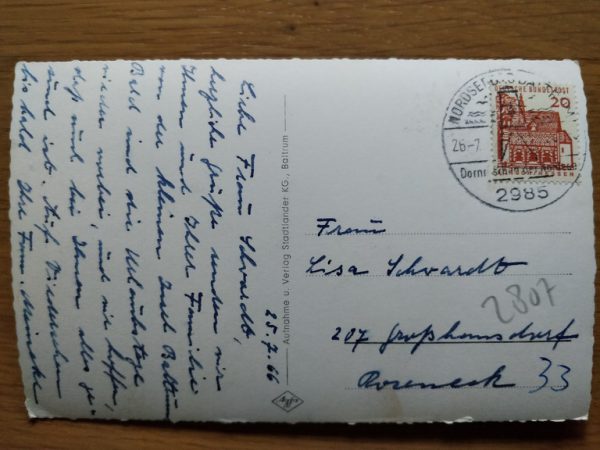 25.7.66
Liebe Frau Schvardt,
herzliche Grüße senden wir
Ihnen und Ihrer Familie
von der kleinen Insel Baltrum
Bald sind die Urlaubstage
wieder vorbei, und wir hoffen,
daß auch bei Ihnen alles ge-
sund ist. Auf Wiedersehen
bis bald Ihre Fam. Meineke
Aufnahme u. Verlag Stadtlander KG., Baltrum
NORDSEEB
26-7
2985
BUNDESPOST
20
Frau
Lisa Schvardt
2807
207 Großhansdorf
Roseneck 33